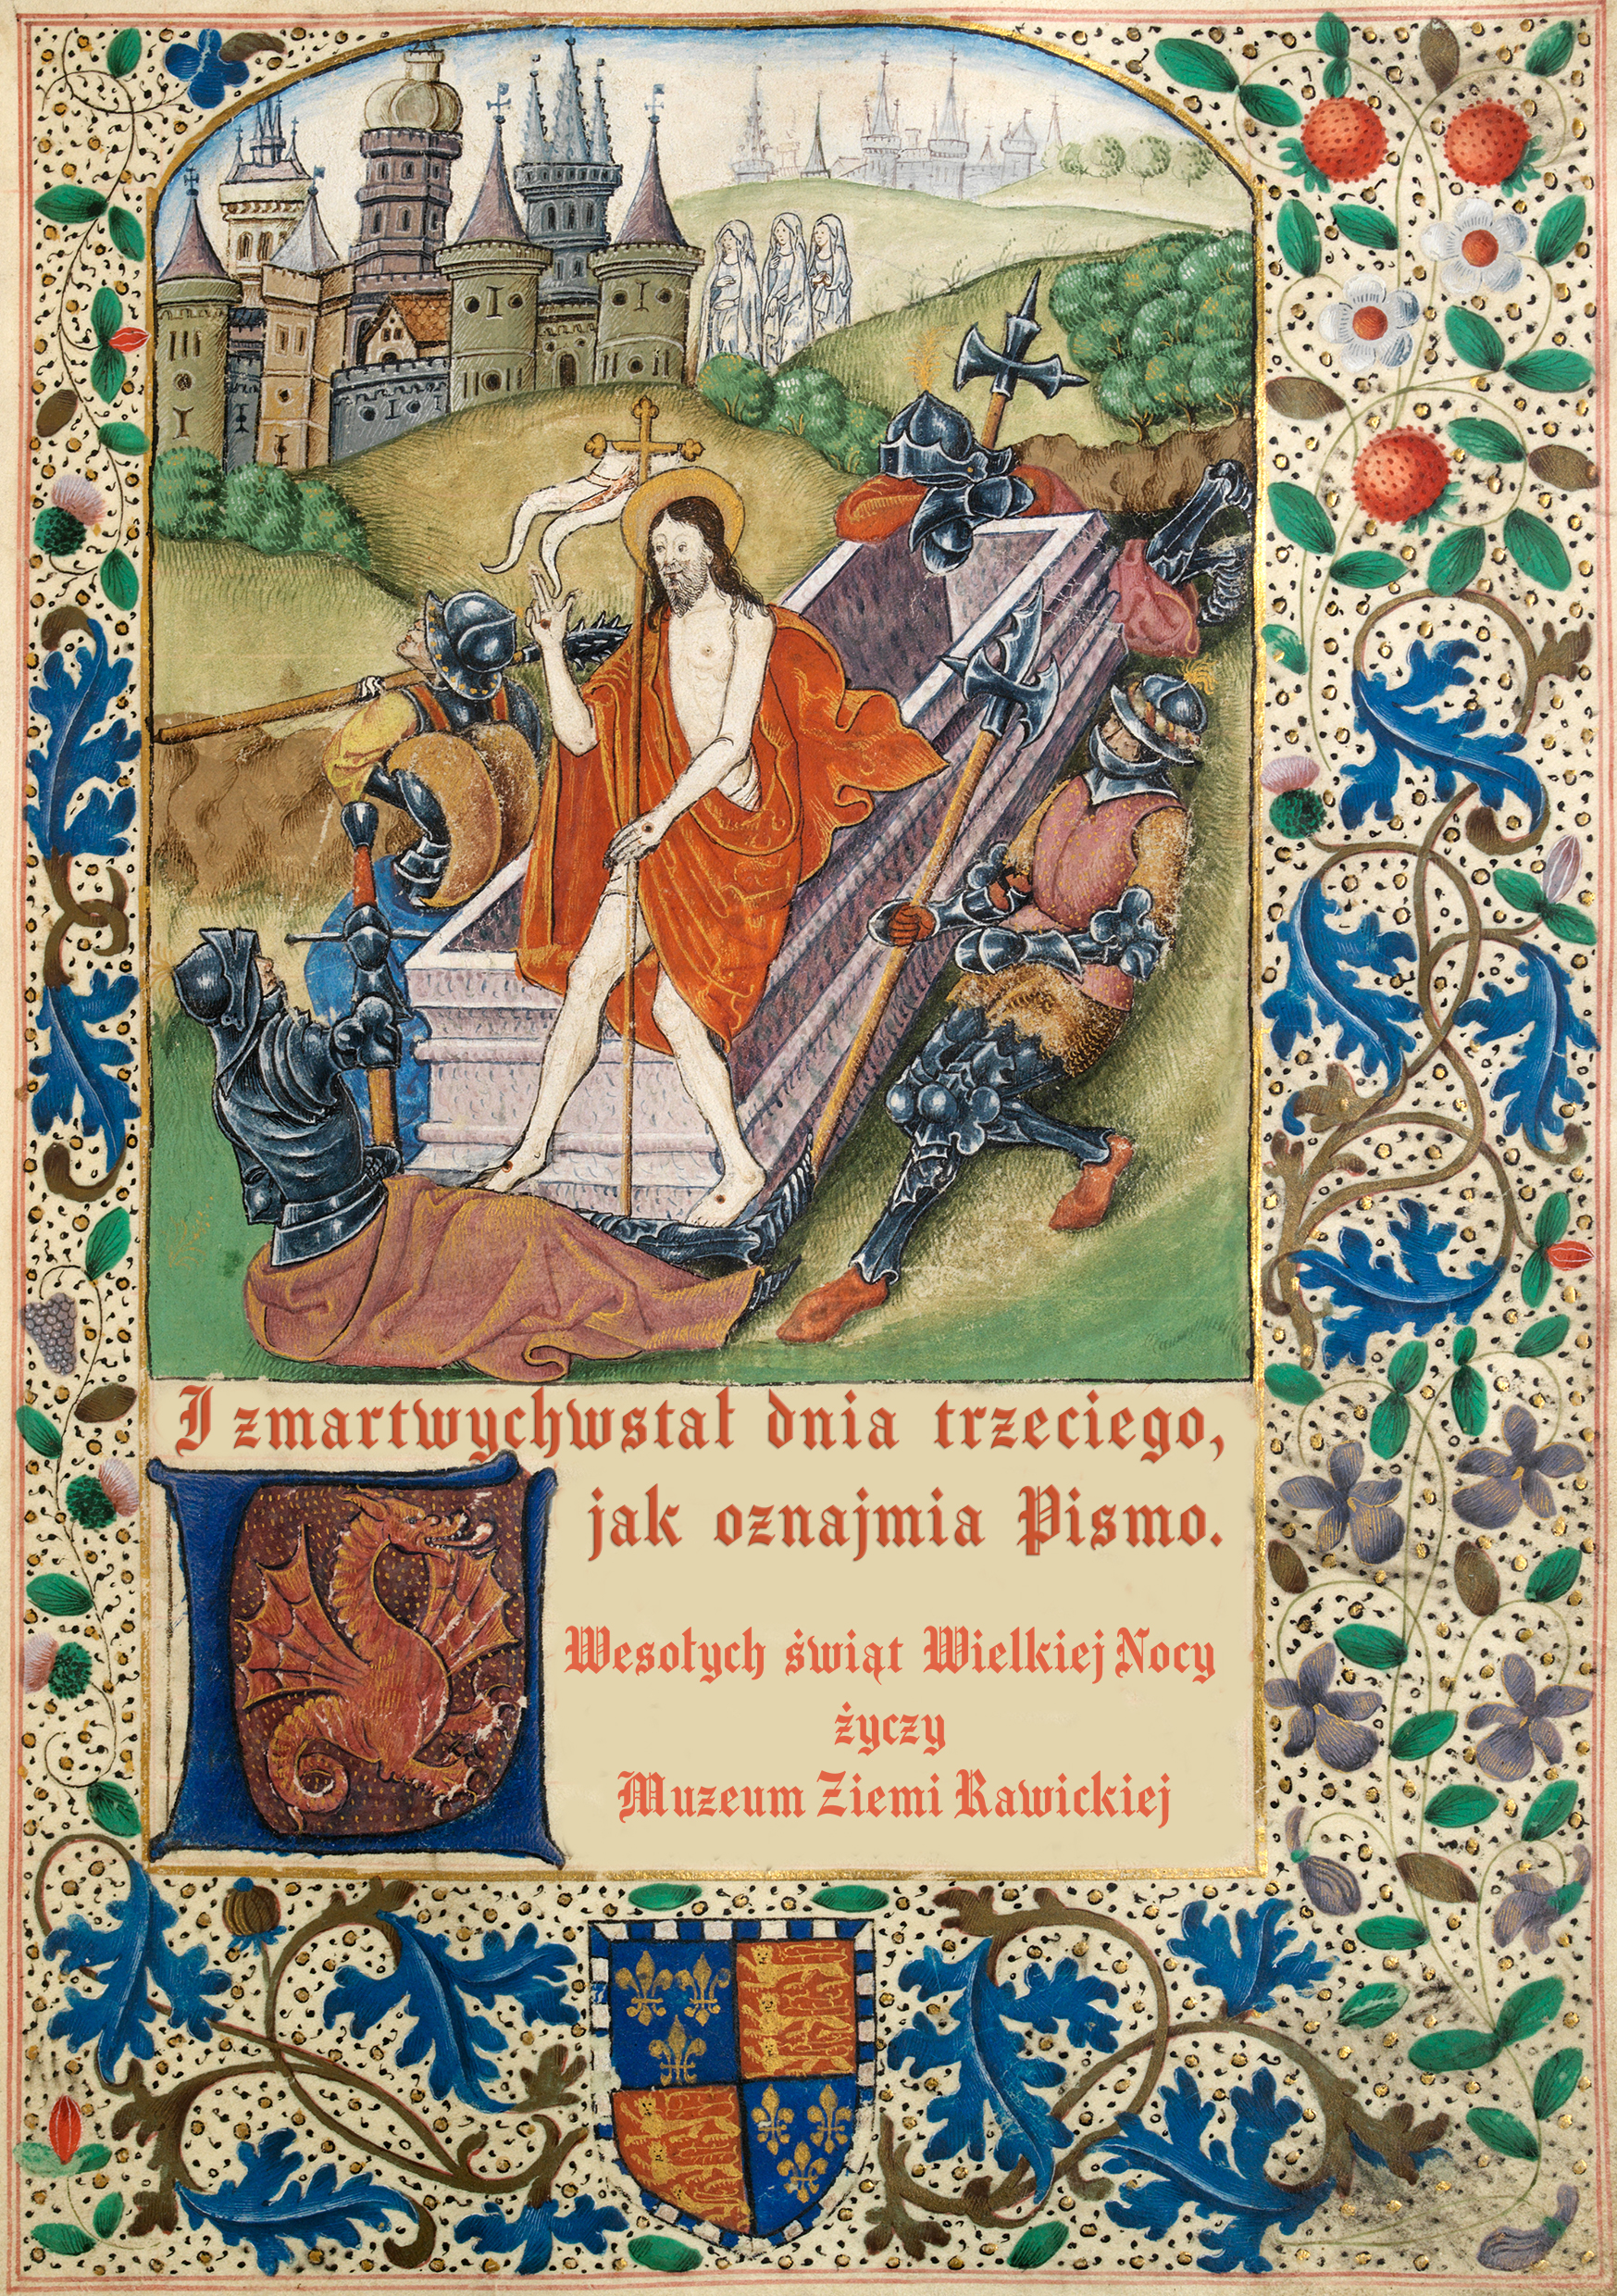 I zmartwychwstał dnia trzeciego,
jak oznajmia Pismo.
Wesołych świąt Wielkiej Nocy
życzy
Muzeum Ziemi Rawickiej